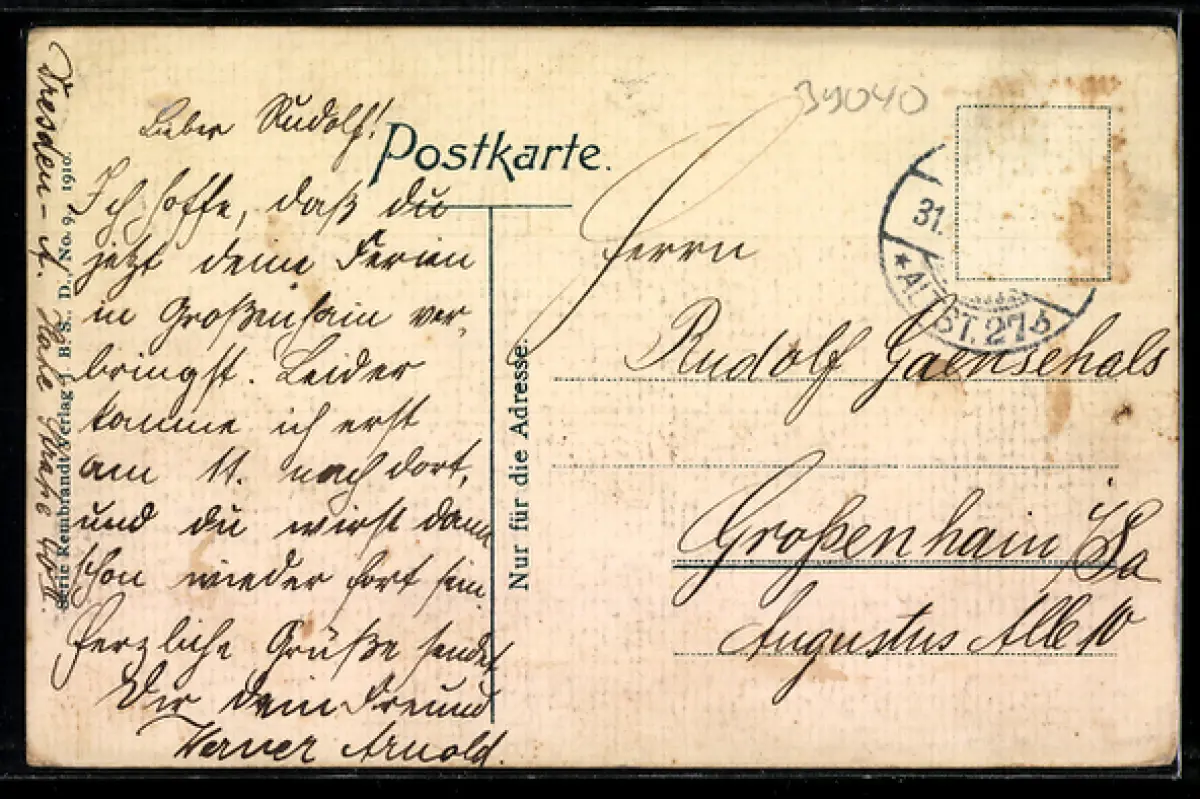 39040
Postkarte.
Lieber Rudolf!
Ich hoffe, daß du
jetzt deine Ferien
in Großenhain ver-
bringst. Leider
komme ich erst
am 11. nach dort,
und du wirst dann
schon wieder fort sein.
Herzliche Grüße sendet
Dir Dein Freund
Werner Arnold.
Dresden-A.
Serie Rembrandt, Verlag J. B. S., D., No. 9, 1910.
Nur für die Adresse.
31.
*ALTST. 27 b
Herrn
Rudolf Gaensehals
Großenhain i/Sa
Augustus Alle 10